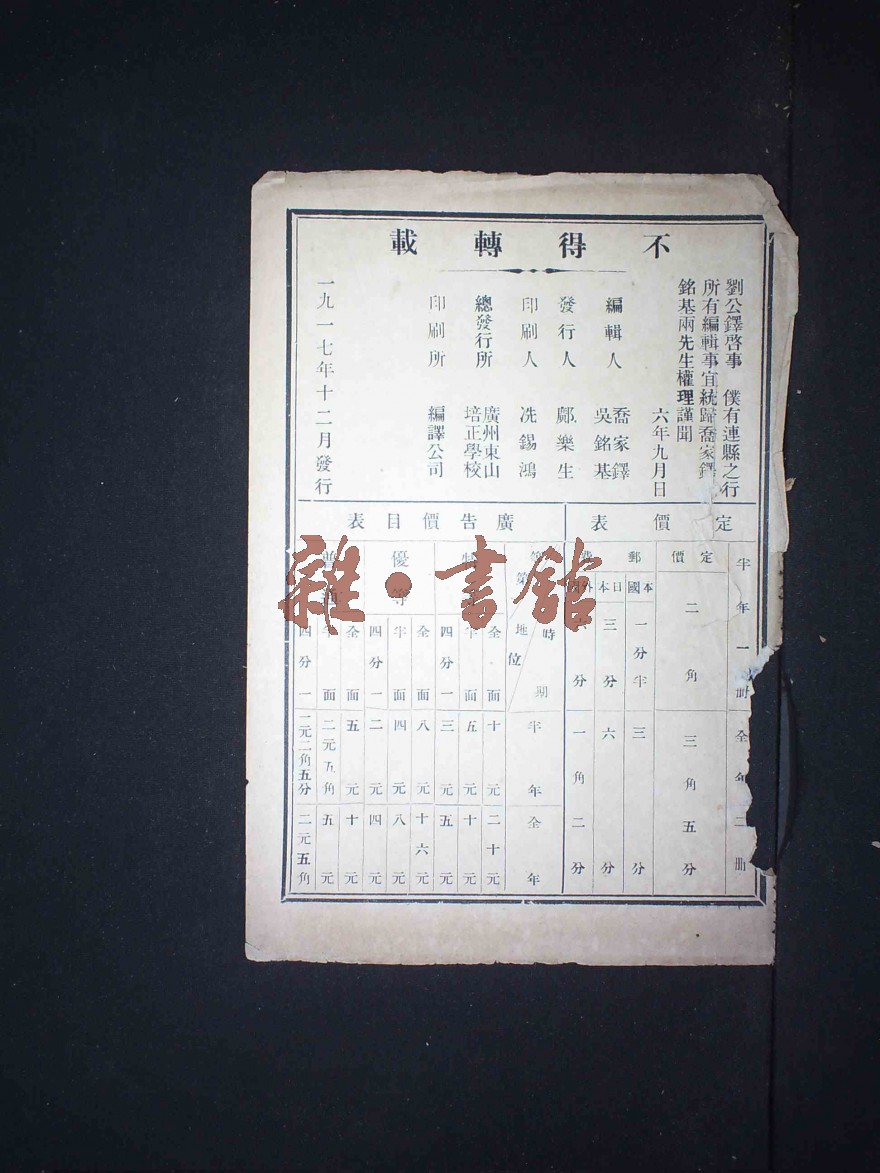 不得轉載
劉公鐸啓事　僕有連縣之行
所有編輯事宜統歸喬家鐸
銘基兩先生權理謹聞
六年九月日
編輯人　喬家鐸
吳銘基
發行人　鄺樂生
印刷人　冼錫鴻
總發行所　廣州東山
培正學校
印刷所　編譯公司
一九一七年十二月發行
定價表
半年一冊　全年二冊
定價　二角　三角五分
郵費　本國　一分半　三分
日本　三分　六分
國外　六分　一角二分
廣告價目表
等第　地位　時期　半年　全年
特等　全面　十元　二十元
半面　五元　十元
四分一　三元　五元
優等　全面　八元　十六元
半面　四元　八元
四分一　二元　四元
普通　全面　五元　十元
半面　二元五角　五元
四分一　二元二角五分　二元五角
雜·書館